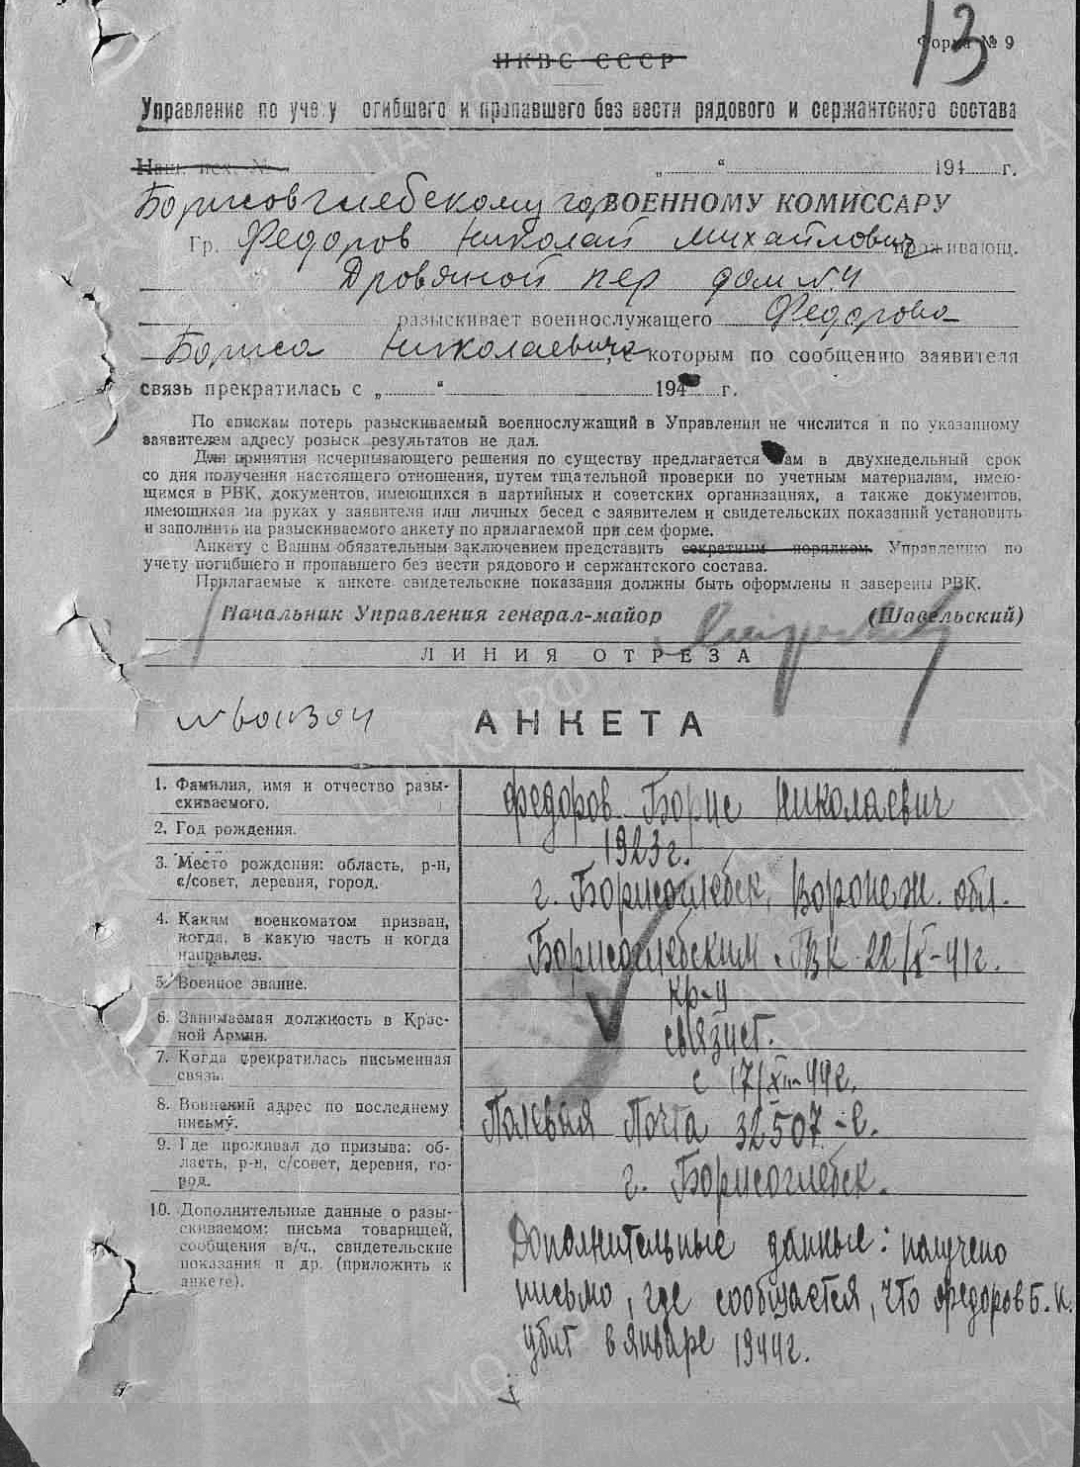 13
Форма № 9
НКВС СССР
Управление по учету погибшего и пропавшего без вести рядового и сержантского состава
Наш. исх. № „ “ 194 г.
Борисовглебскому гор ВОЕННОМУ КОМИССАРУ
Гр. Федоров Николай Михайлович проживающ.
Дровяной пер дом № 4
разыскивает военнослужащего Федорова
Бориса Николаевича, с которым по сообщению заявителя
связь прекратилась с „ “ 194 г.
По спискам потерь разыскиваемый военнослужащий в Управлении не числится и по указанному
заявителем адресу розыск результатов не дал.
Для принятия исчерпывающего решения по существу предлагается Вам в двухнедельный срок
со дня получения настоящего отношения, путем тщательной проверки по учетным материалам, имею-
щимся в РВК, документов, имеющихся в партийных и советских организациях, а также документов,
имеющихся на руках у заявителя или личных бесед с заявителем и свидетельских показаний установить
и заполнить на разыскиваемого анкету по прилагаемой при сем форме.
Анкету с Вашим обязательным заключением представить секретным порядком Управлению по
учету погибшего и пропавшего без вести рядового и сержантского состава.
Прилагаемые к анкете свидетельские показания должны быть оформлены и заверены РВК.
Начальник Управления генерал-майор (Шавельский)
ЛИНИЯ ОТРЕЗА
АНКЕТА
1. Фамилия, имя и отчество разы-
скиваемого.
Федоров Борис Николаевич
2. Год рождения.
1923 г.
3. Место рождения: область, р-н,
с/совет, деревня, город.
г. Борисоглебск, Воронеж. обл.
4. Каким военкоматом призван,
когда, в какую часть и когда
направлен.
Борисоглебским ГВК 22/X-41 г.
5. Военное звание.
кр-ц
6. Занимаемая должность в Крас-
ной Армии.
связист.
7. Когда прекратилась письменная
связь.
с 17/XII-44 г.
8. Воинский адрес по последнему
письму.
Полевая Почта 32507-е.
9. Где проживал до призыва: об-
ласть, р-н, с/совет, деревня, го-
род.
г. Борисоглебск.
10. Дополнительные данные о разы-
скиваемом: письма товарищей,
сообщения в/ч., свидетельские
показания и др. (приложить к
анкете).
Дополнительные данные: получено
письмо, где сообщается, что Федоров Б. Н.
убит в январе 1944 г.